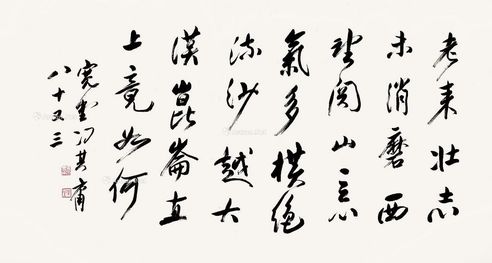 老来壮志
未消磨西
望関山意
氣多横絶
流沙越大
漠崑崙直
上竟如何
寛堂冯其庸
八十又三